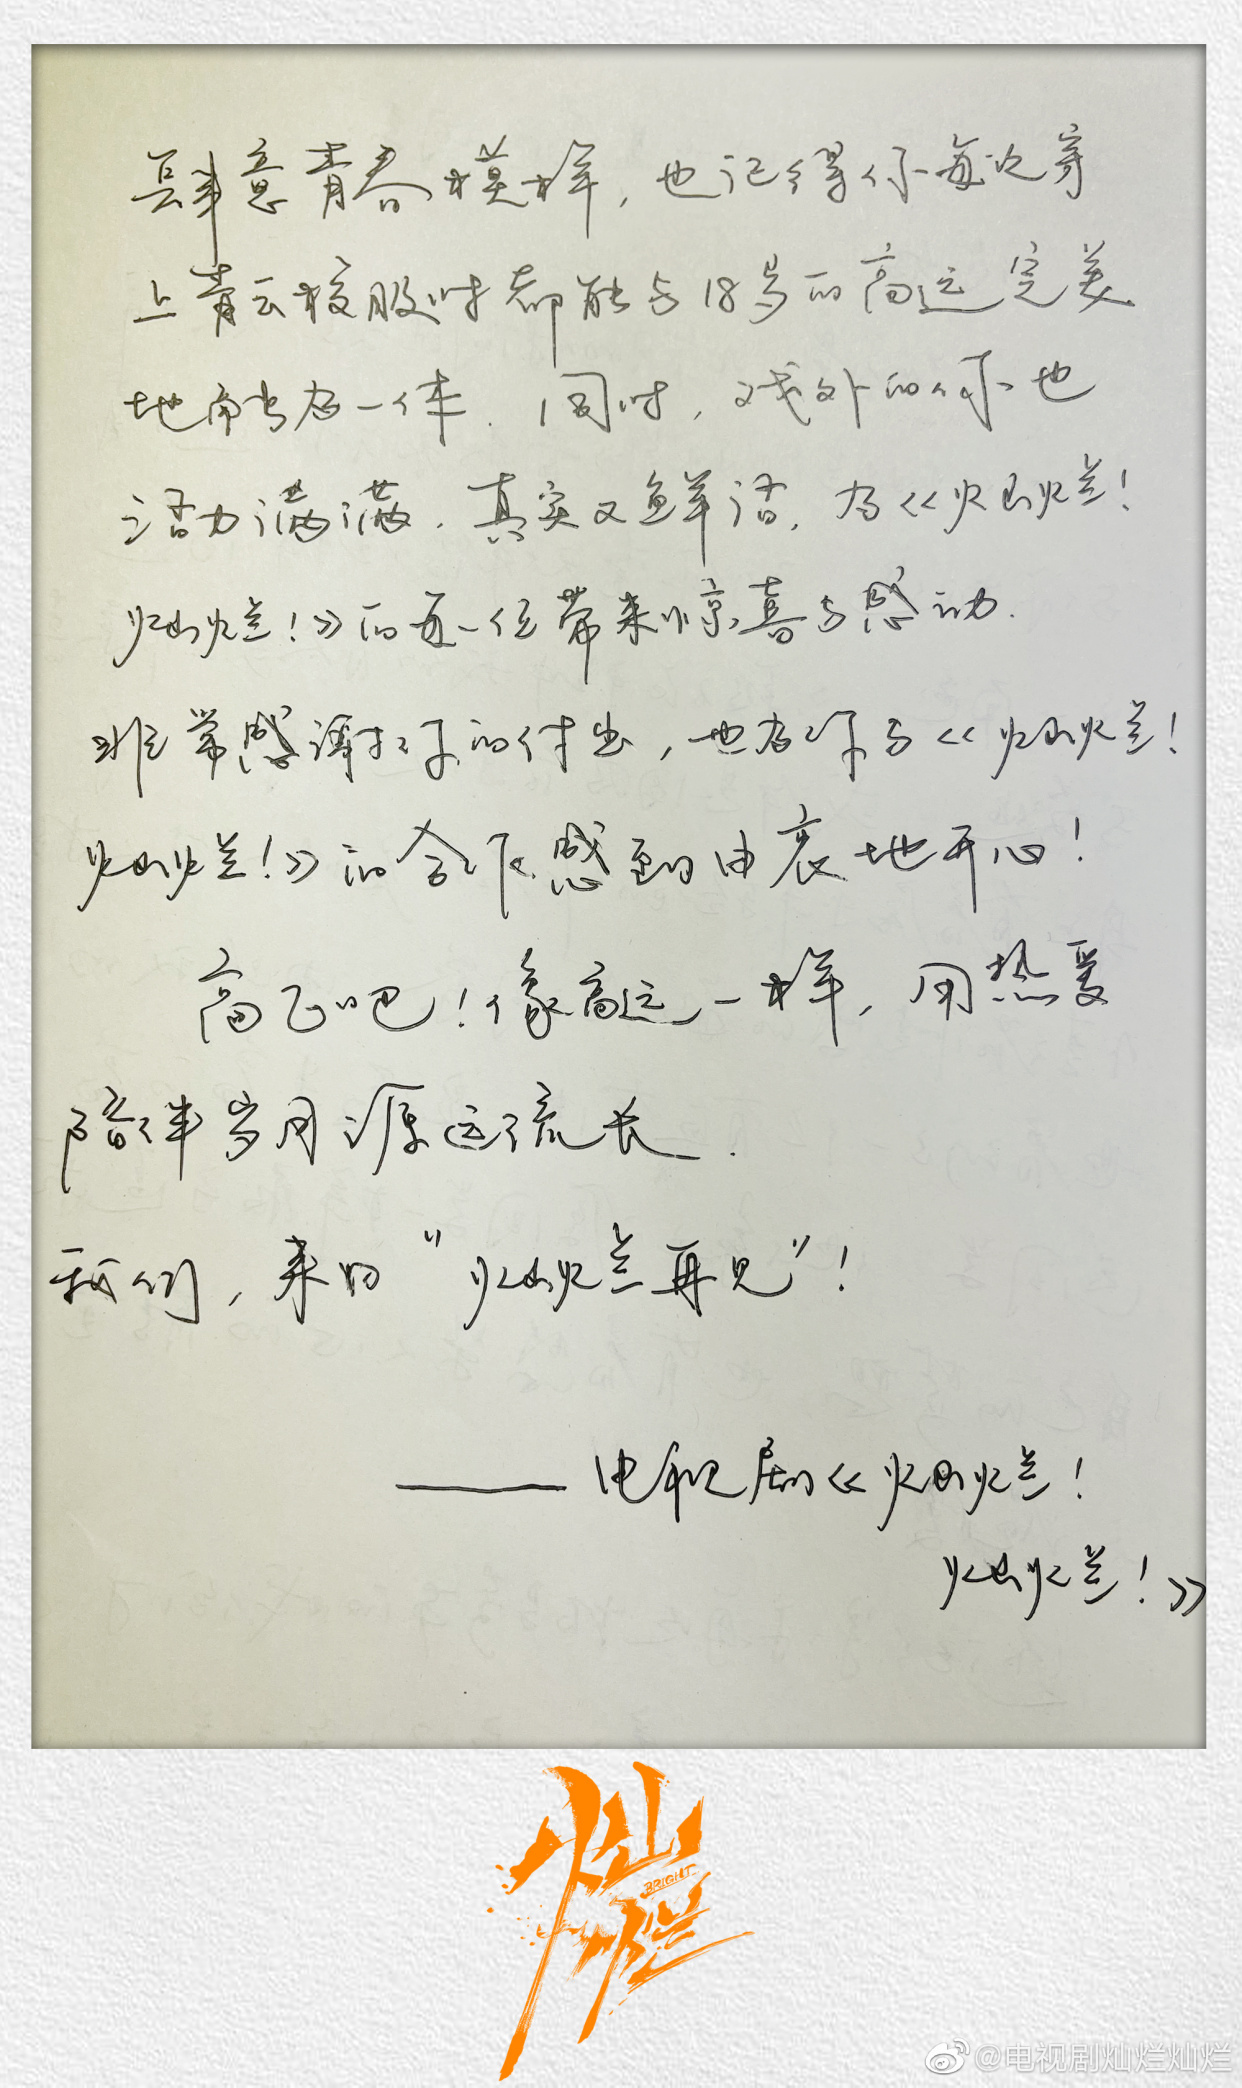 肆意青春模样，也记得你每次穿
上青云校服时都能与18岁的高远完美
地融为一体．同时，戏外的你也
活力满满．真实又鲜活．为《灿烂！
灿烂！》的每一位带来惊喜与感动．
非常感谢你的付出，也为你与《灿烂！
灿烂！》的合作感到由衷地开心！
高飞吧！像高远一样，用热爱
陪伴岁月源远流长．
我们，来日“灿烂再见”！
——电视剧《灿烂！
灿烂！》
灿烂
BRIGHT
@电视剧灿烂灿烂